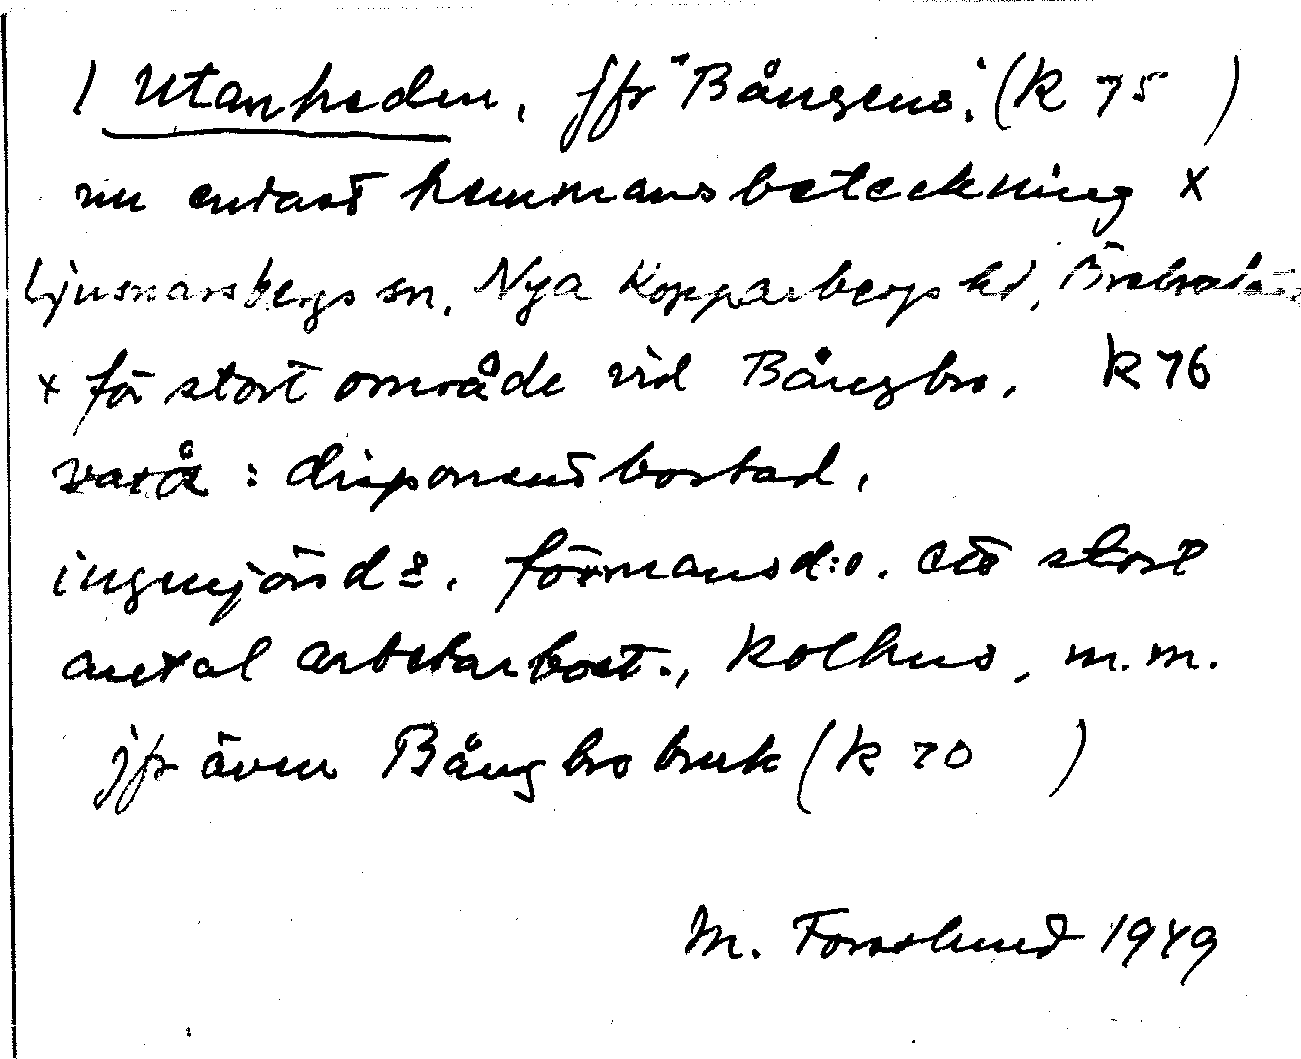 1 Utanheden, jfr "Bångens". (K 75 )
nu endast hemmansbeteckning x
Ljusnarsbergs sn, Nya Kopparbergs hd, Örebro län
x för stort område vid Bångbro. K 76
varå : disponentbostad,
ingenjörsd:o. förmansd:o. ett stort
antal arbetarbost., kolhus, m.m.
jfr även Bångbro bruk (K 70 )
M. Forsslund 1949